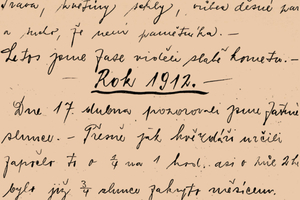 tráva, květiny schly, vítr děsné
a sucho, že není pamětníka. —
Letos jsme zase viděli slabě kometu. —
Rok 1912. —
Dne 17. dubna pozorovali jsme zatmění
slunce. — Přesně jak hvězdáři určili
započlo to o ¾ na 1 hod. asi o půl 2 h
bylo již ¾ slunce zakryto měsícem.